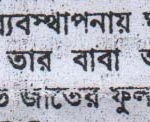 ব্যবস্থাপনায়
তার বাবা
জাতের ফুল